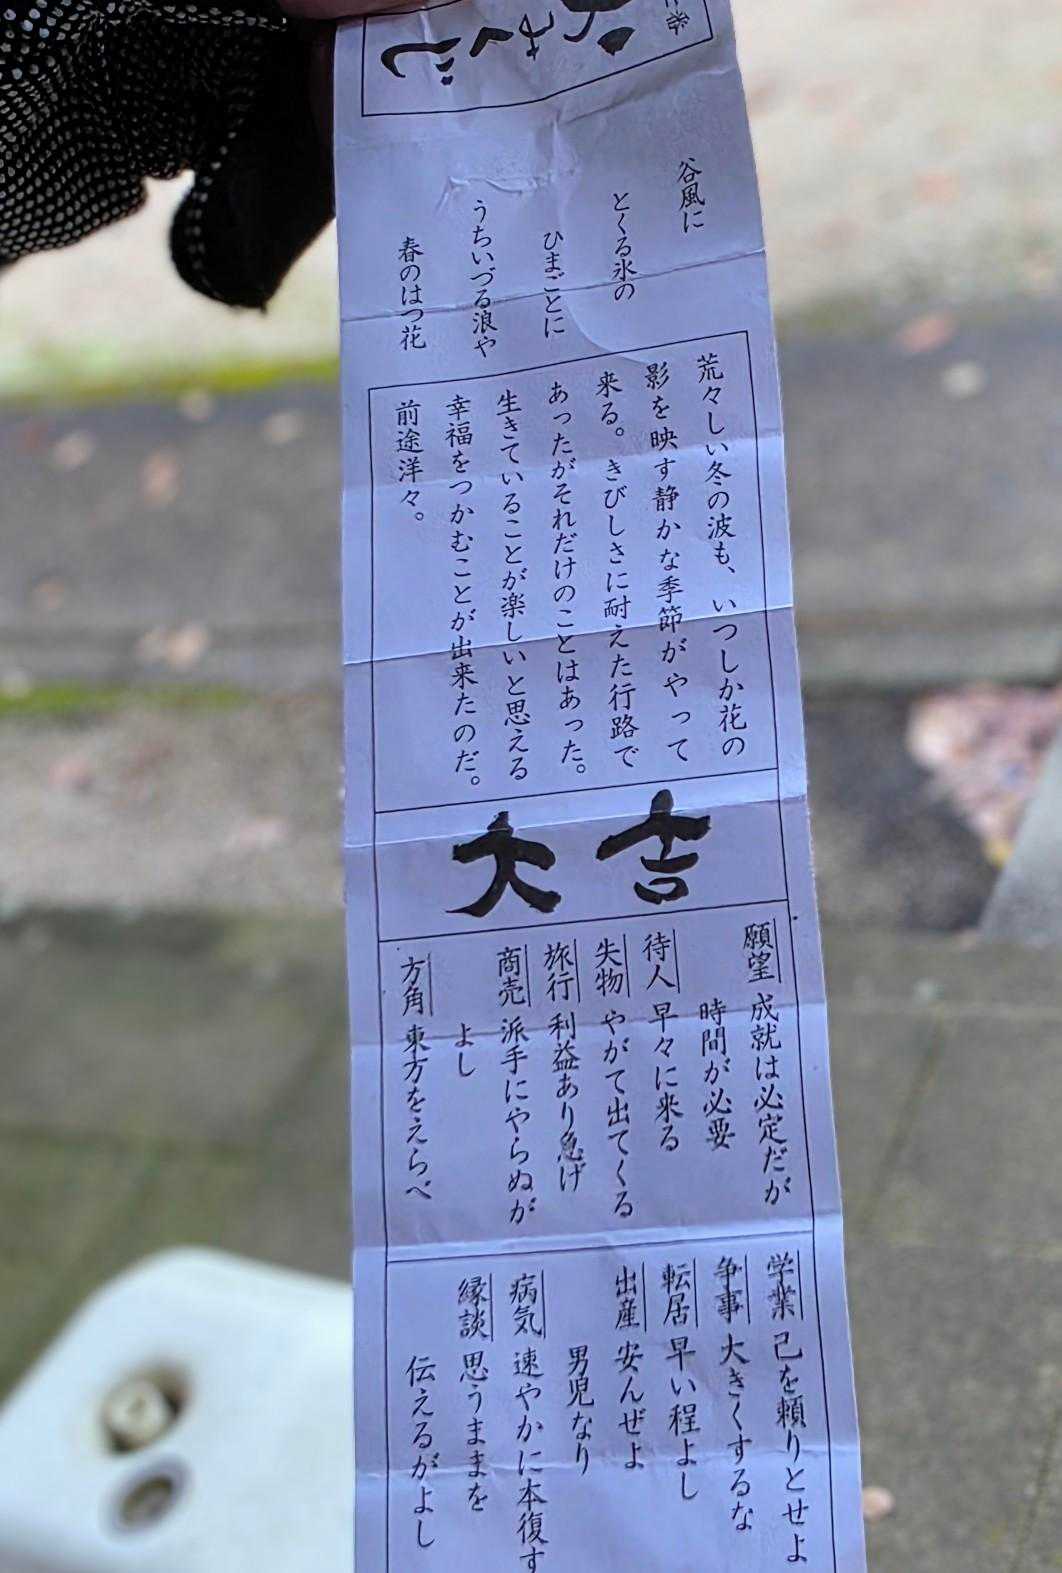 おみくじ
谷風に
とくる氷の
ひまごとに
うちいづる浪や
春のはつ花
荒々しい冬の波も、いつしか花の
影を映す静かな季節がやって
来る。きびしさに耐えた行路で
あったがそれだけのことはあった。
生きていることが楽しいと思える
幸福をつかむことが出来たのだ。
前途洋々。
大吉
願望 成就は必定だが
時間が必要
待人 早々に来る
失物 やがて出てくる
旅行 利益あり急げ
商売 派手にやらぬが
よし
方角 東方をえらべ
学業 己を頼りとせよ
争事 大きくするな
転居 早い程よし
出産 安んぜよ
男児なり
病気 速やかに本復す
縁談 思うままを
伝えるがよし